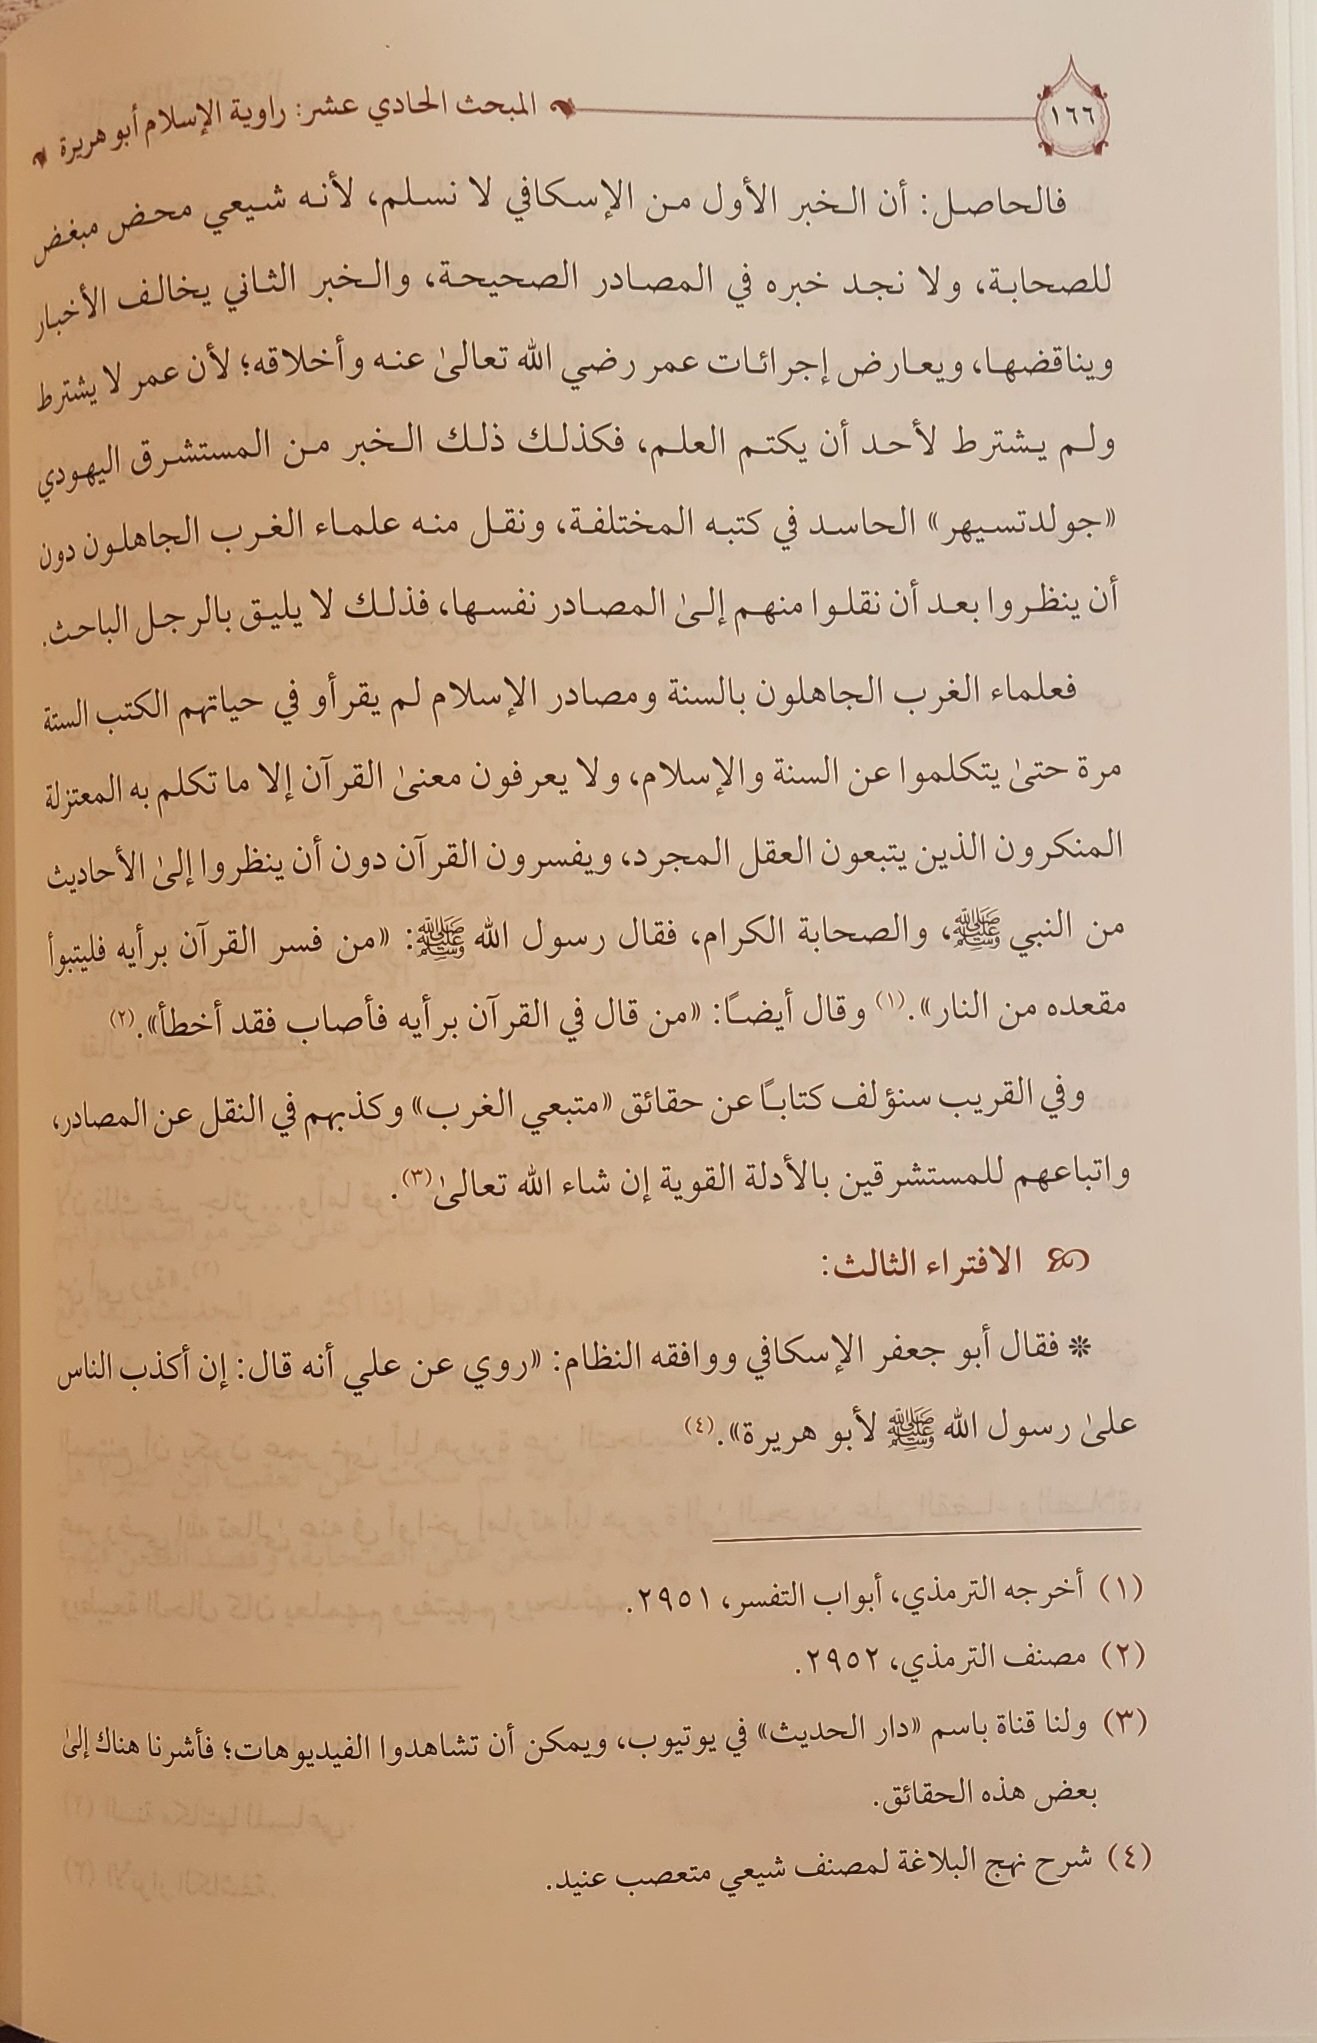 ١٦٦
المبحث الحادي عشر: راوية الإسلام أبو هريرة
فالحاصل: أن الخبر الأول من الإسكافي لا نسلم، لأنه شيعي محض مبغض
للصحابة، ولا نجد خبره في المصادر الصحيحة، والخبر الثاني يخالف الأخبار
ويناقضها، ويعارض إجرائات عمر رضي الله تعالىٰ عنه وأخلاقه؛ لأن عمر لا يشترط
ولم يشترط لأحد أن يكتم العلم، فكذلك ذلك الخبر من المستشرق اليهودي
«جولدتسيهر» الحاسد في كتبه المختلفة، ونقل منه علماء الغرب الجاهلون دون
أن ينظروا بعد أن نقلوا منهم إلىٰ المصادر نفسها، فذلك لا يليق بالرجل الباحث.
فعلماء الغرب الجاهلون بالسنة ومصادر الإسلام لم يقرأو في حياتهم الكتب الستة
مرة حتىٰ يتكلموا عن السنة والإسلام، ولا يعرفون معنىٰ القرآن إلا ما تكلم به المعتزلة
المنكرون الذين يتبعون العقل المجرد، ويفسرون القرآن دون أن ينظروا إلىٰ الأحاديث
من النبي ﷺ، والصحابة الكرام، فقال رسول الله ﷺ: «من فسر القرآن برأيه فليتبوأ
مقعده من النار».(١) وقال أيضًا: «من قال في القرآن برأيه فأصاب فقد أخطأ».(٢)
وفي القريب سنؤلف كتابًا عن حقائق «متبعي الغرب» وكذبهم في النقل عن المصادر،
واتباعهم للمستشرقين بالأدلة القوية إن شاء الله تعالىٰ(٣).
الافتراء الثالث:
❊ فقال أبو جعفر الإسكافي ووافقه النظام: «روي عن علي أنه قال: إن أكذب الناس
علىٰ رسول الله ﷺ لأبو هريرة».(٤)
(١) أخرجه الترمذي، أبواب التفسر، ٢٩٥١.
(٢) مصنف الترمذي، ٢٩٥٢.
(٣) ولنا قناة باسم «دار الحديث» في يوتيوب، ويمكن أن تشاهدوا الفيديوهات؛ فأشرنا هناك إلىٰ
بعض هذه الحقائق.
(٤) شرح نهج البلاغة لمصنف شيعي متعصب عنيد.